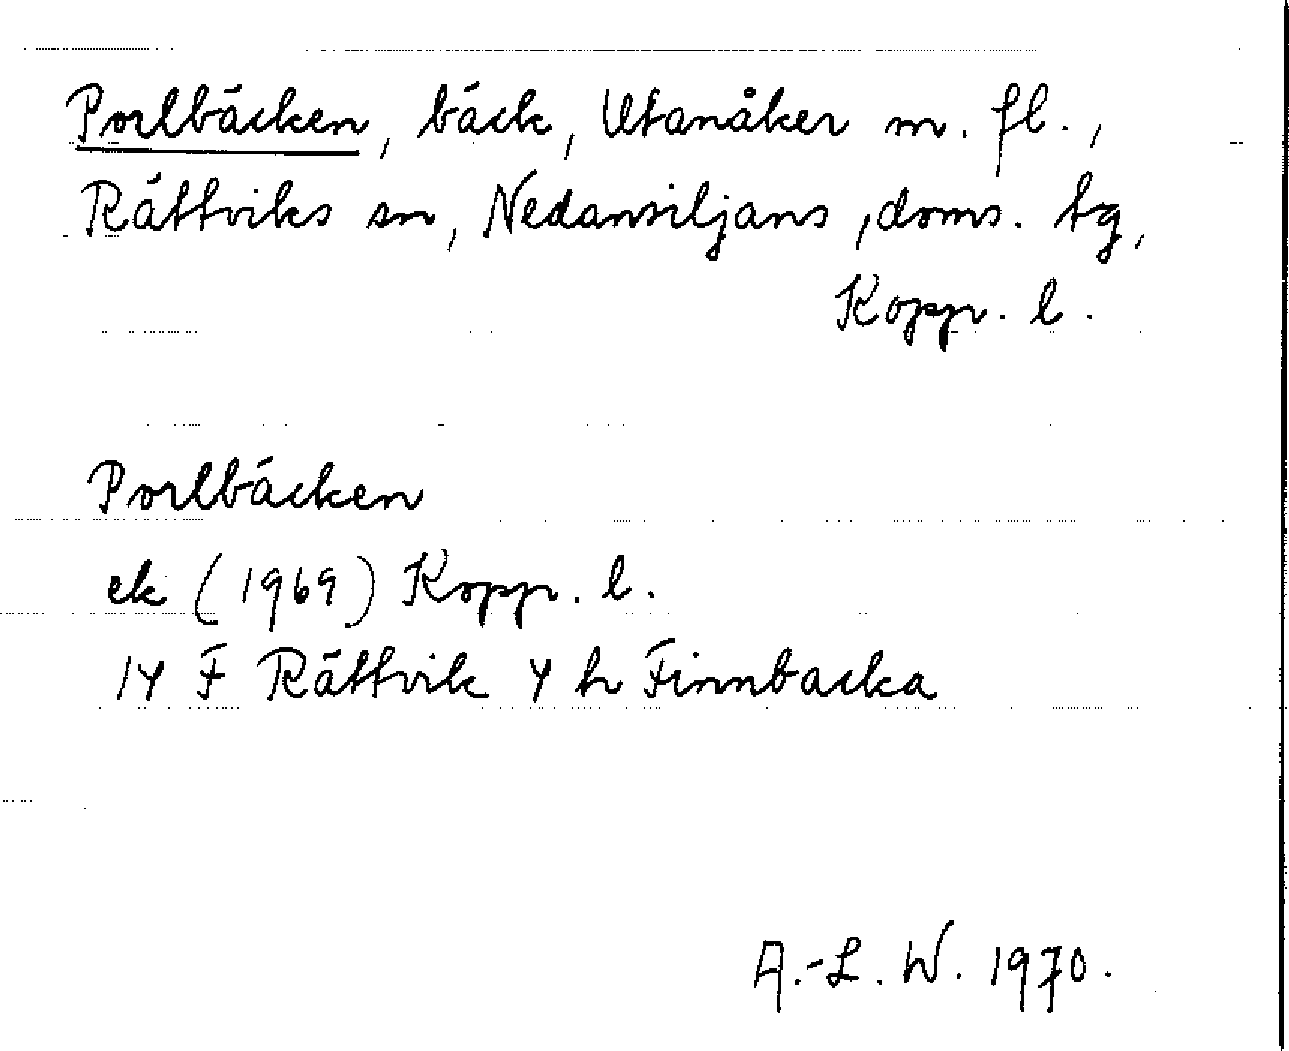 Porlbäcken, bäck, Utanåker m. fl.,
Rättviks sn, Nedansiljans, doms. tg,
Kopp. l.
Porlbäcken
ek (1969) Kopp. l.
14 F Rättvik 4 h Finnbacka
A.-L. W. 1970.